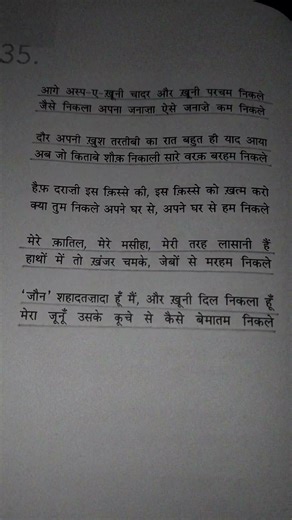 35.
आगे अस्प-ए-ख़ूनी चादर और ख़ूनी परचम निकले
जैसे निकला अपना जनाज़ा ऐसे जनाज़े कम निकले
दौर अपनी ख़ुश तरतीबी का रात बहुत ही याद आया
अब जो किताबे शौक़ निकाली सारे वरक़ बरहम निकले
हैफ़ दराज़ी इस क़िस्से की, इस क़िस्से को ख़त्म करो
क्या तुम निकले अपने घर से, अपने घर से हम निकले
मेरे क़ातिल, मेरे मसीहा, मेरी तरह लासानी हैं
हाथों में तो ख़ंजर चमके, जेबों से मरहम निकले
'जौन' शहादतज़ादा हूँ मैं, और ख़ूनी दिल निकला हूँ
मेरा जूनूँ उसके कूचे से कैसे बेमातम निकले